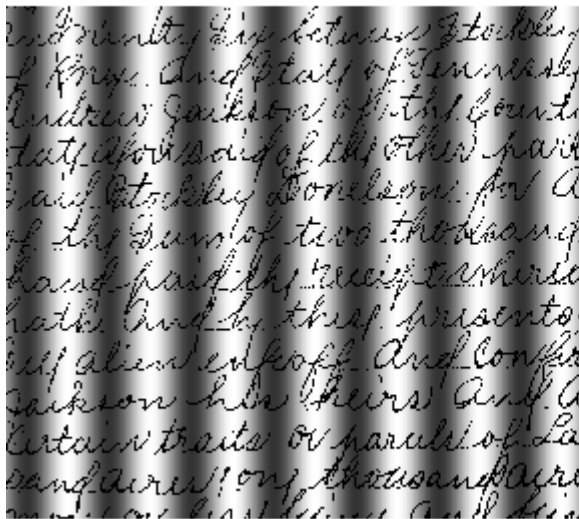 and Ninety Six between Stockley
of Knox And State of Tennessee
Andrew Jackson of the Count
tate aforesaid of the other part
said Stockley Donelson for a
of the Sum of two thousand
hand paid the receipt wherec
hath And by these presents
alien enfeoff And Confir
Jackson his heirs And
Certain traits or parcels of La
sand acres one thousand acre
And